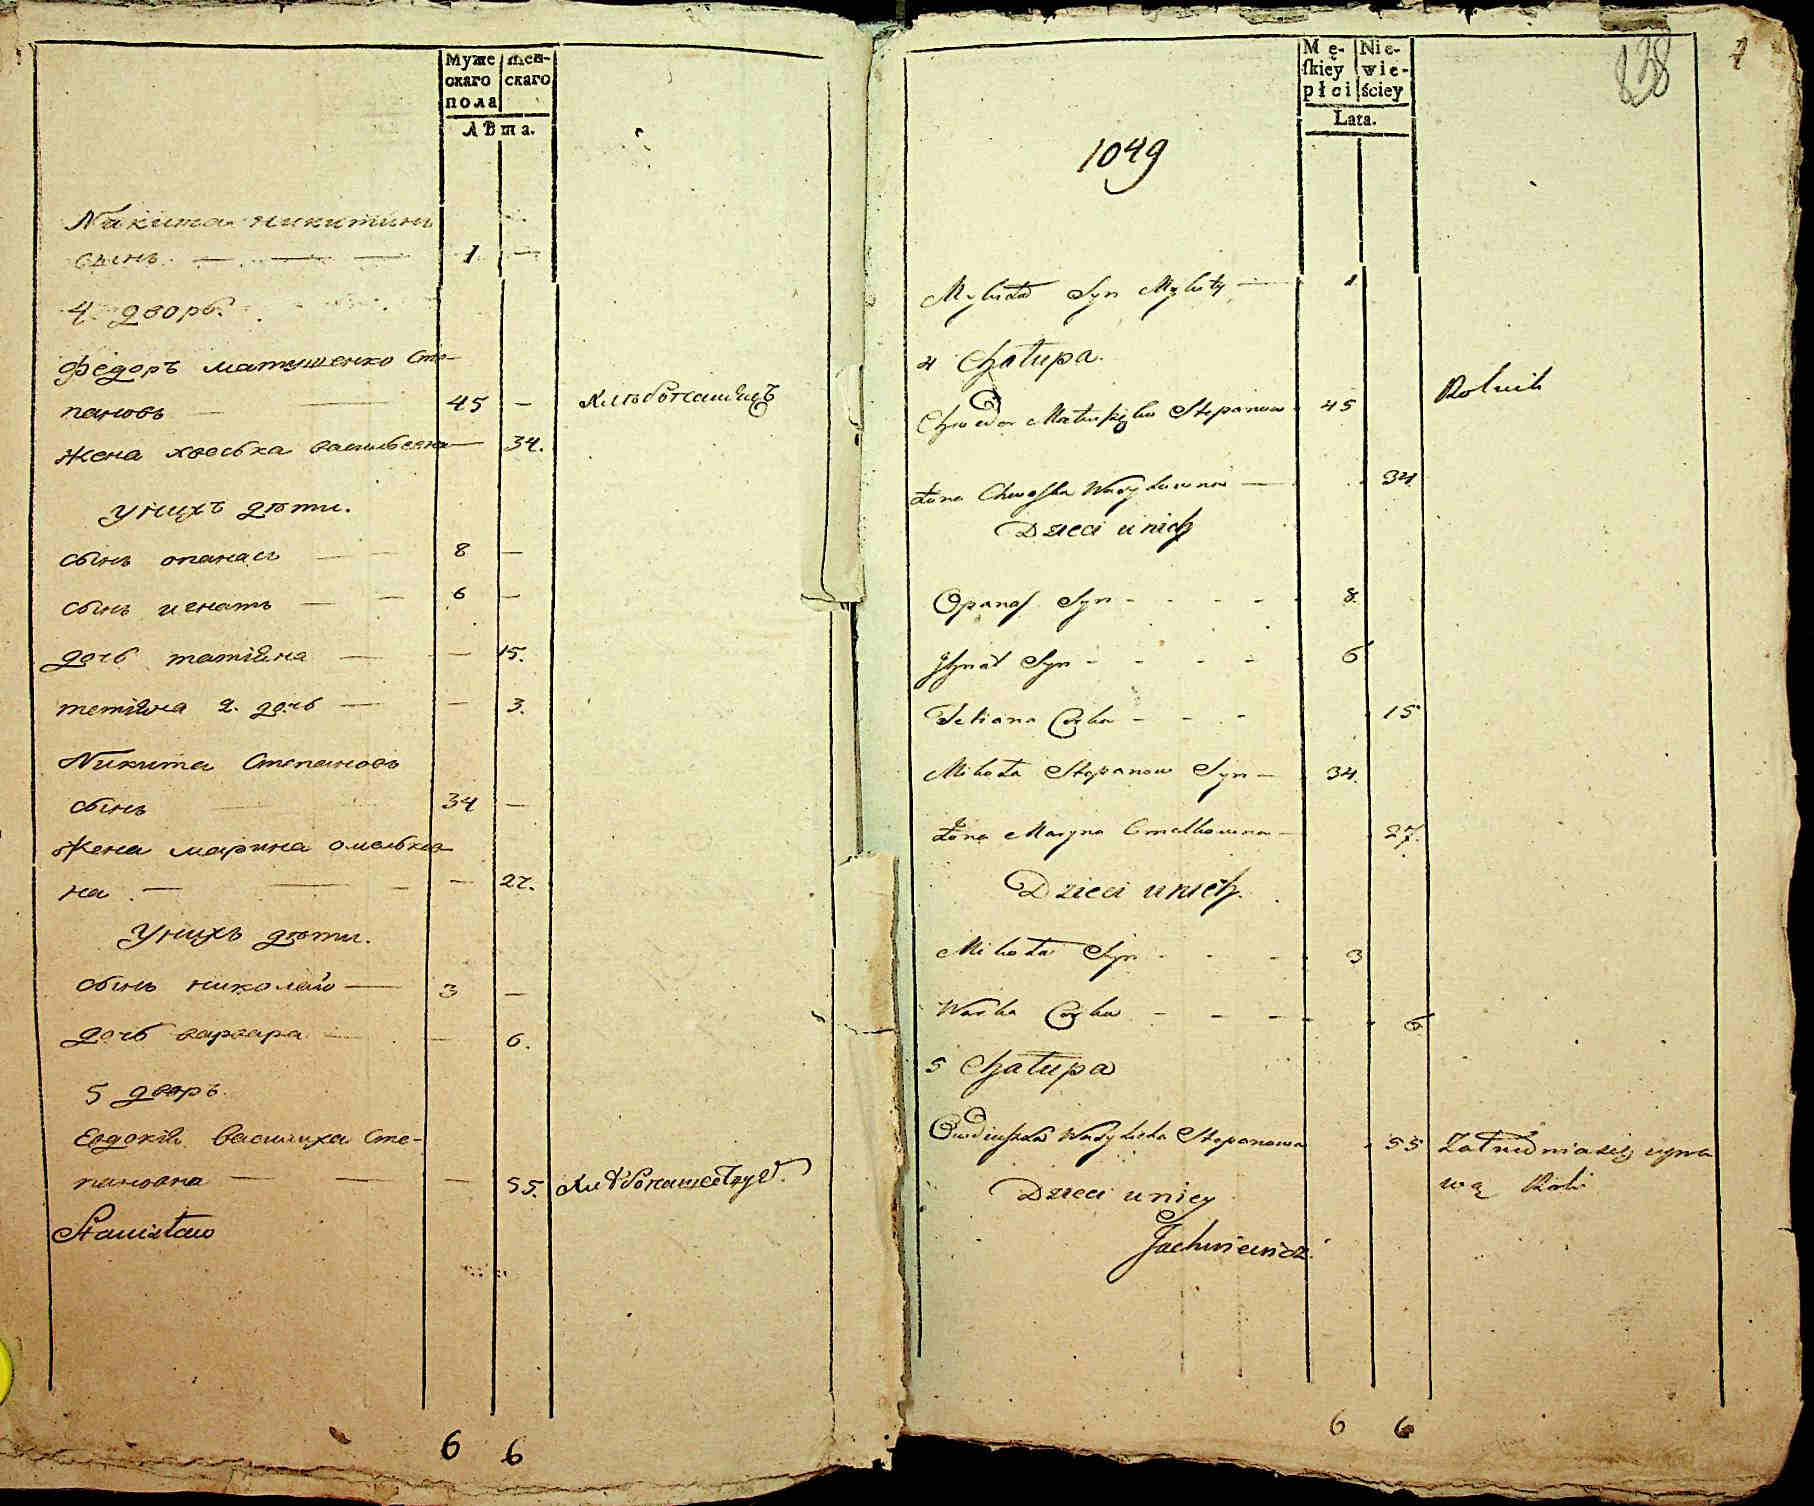 Муже
скаго
пола
жен-
скаго
лѣта.
Никита никитинъ
сынъ — — — 1 —
4 дворъ.
Федоръ матушенко Сте-
пановъ — 45 — хлѣбопашецъ
жена хвеська васильевна — 34.
у нихъ дѣти.
сынъ опанасъ — — 8 —
сынъ игнатъ — — 6 —
дочь татіяна — — 15.
тетіяна 2. дочь — — 3.
Никита Степановъ
сынъ 34 —
жена марина омельков
на — — — 27.
у нихъ дѣти.
сынъ николай — 3 —
дочь варвара — — 6.
5 дворъ.
Евдокія василиха Сте-
пановна — — — 55.
Stanisław
6 6
Mę-
ſkiey
płci
Nie-
wie-
ściey
Lata.
138
1
1049
Mykita Syn Mykity — 1
4 Chałupa.
Chwedor Matuszenko Stepanow 45 Rolnik
Żona Chweska Wasylowna — 34
Dzieci u nich
Opanas Syn - - - - 8
Ihnat Syn - - - - 6
Tetiana Corka - - - 15
Mikita Stepanow Syn — 34.
Żona Maryna Omelkowna — 27.
Dzieci u nich.
Mikoła Syn - - - 3
Warka Corka - - - - 6
5 Chałupa
Owdiuszka Wasylicha Stepanowa 55 Zatrudnia się upra
wą Roli
Dzieci u niey
Jachniewicz.
6 6